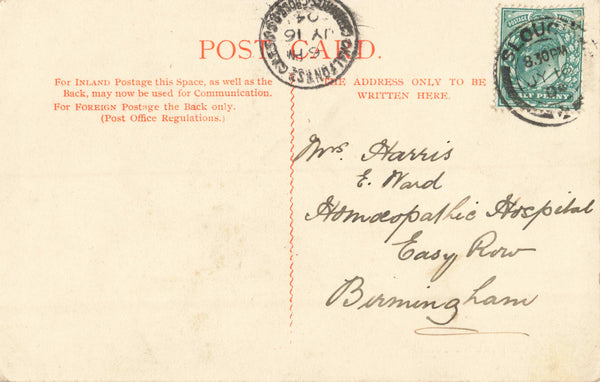 POST CARD.
For INLAND Postage this Space, as well as the
Back, may now be used for Communication.
For FOREIGN Postage the Back only.
(Post Office Regulations.)
THE ADDRESS ONLY TO BE
WRITTEN HERE.
SLOUGH
8.30PM
JY 16
04
6 PM
JY 16
04
Mrs. Harris
E. Ward
Homœopathic Hospital
Easy Row
Birmingham